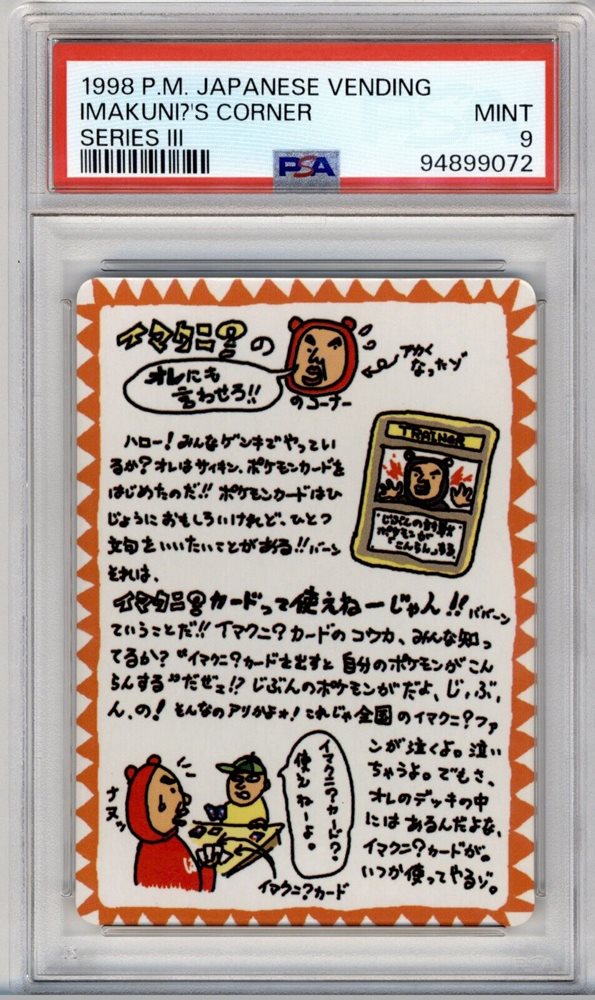 1998 P.M. JAPANESE VENDING
IMAKUNI?'S CORNER MINT
SERIES III 9
PSA 94899072
イマクニ?の
オレにも
言わせろ!!
のコーナー
アカく
なったゾ
ハロー!みんなゲンキでやってい
るか?オレはサイキン、ポケモンカードを
はじめたのだ!!ポケモンカードはひ
じょうにおもしろいけれど、ひとつ
文句をいいたいことがある!!バーン
それは、
TRAINER
じぶんの
ポケモンが
「こんらん」する
イマクニ?カードって使えねーじゃん!!ババーン
ていうことだ!!イマクニ?カードのコウカ、みんな知っ
てるか?"イマクニ?カードを出すと自分のポケモンがこん
らんする"だぜェ!?じぶんのポケモンがだよ、じ,ぶ,
ん,の!そんなのアリかよォ!これじゃ全国のイマクニ?ファ
ンが泣くよ。泣い
ちゃうよ。でもさ、
オレのデッキの中
にはあるんだよな、
イマクニ?カードが。
いつか使ってやるゾ。
ナヌッ
イマクニ?カード?
使えねーよ。
イマクニ?カード